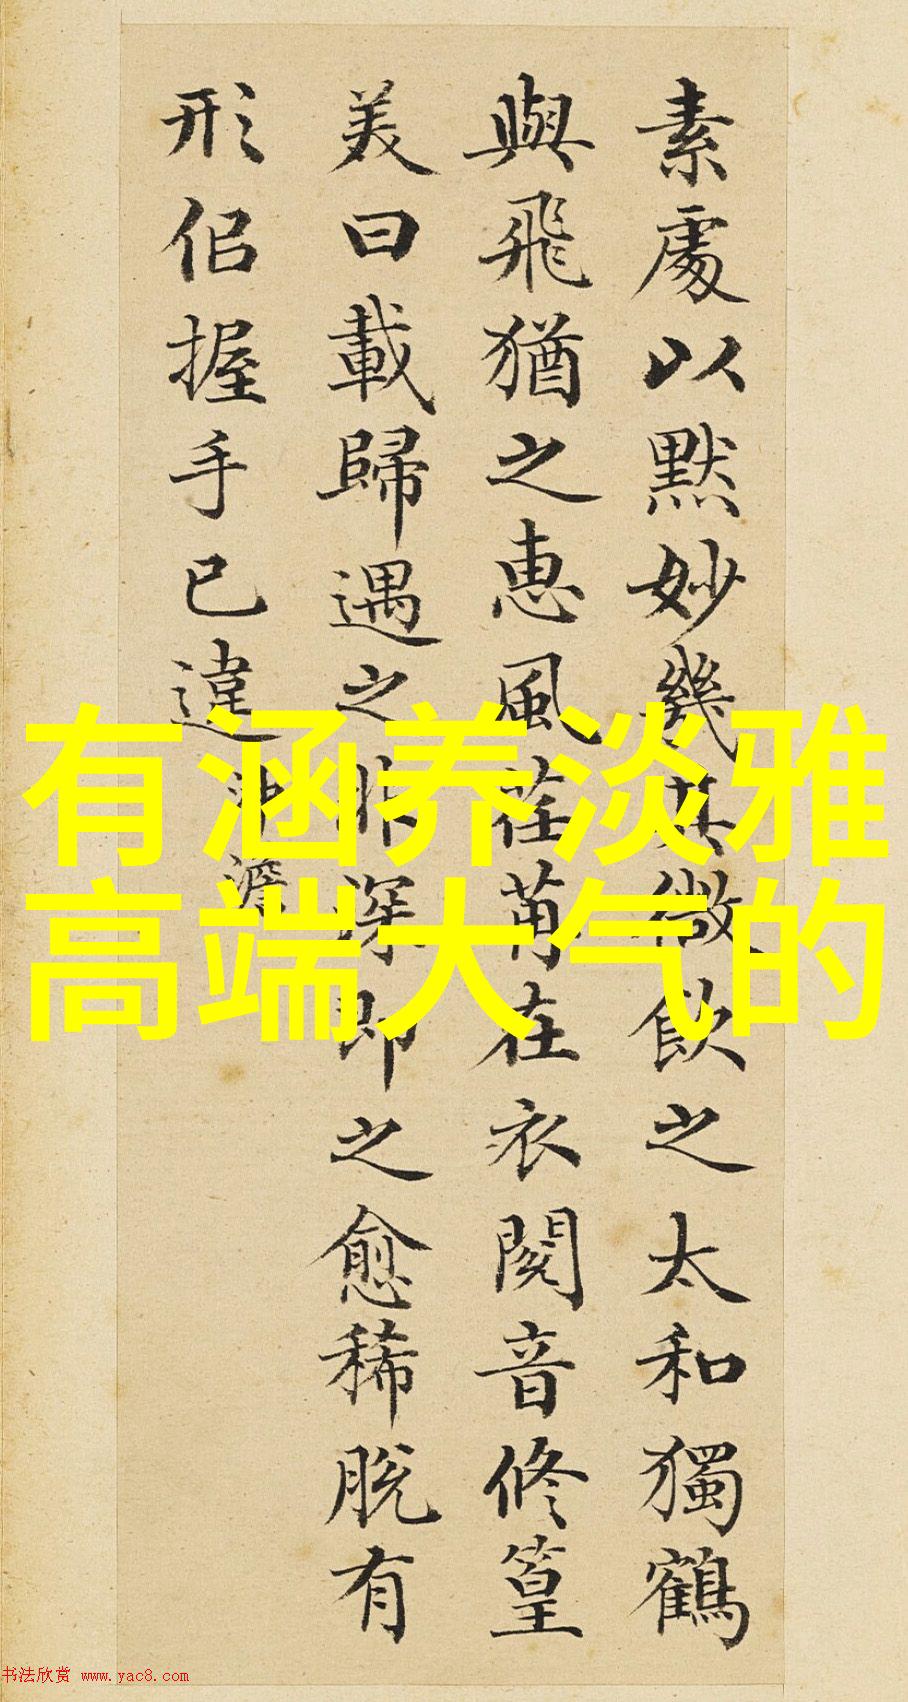 素處以默妙幾其微飲之太和獨鶴
與飛猶之惠風荏苒在衣閱音修篁
美曰載歸遇之非深即之愈稀脫有
形佀握手已違
沖澹
有涵养淡雅
高端大气的
书法欣赏 www.yac8.com